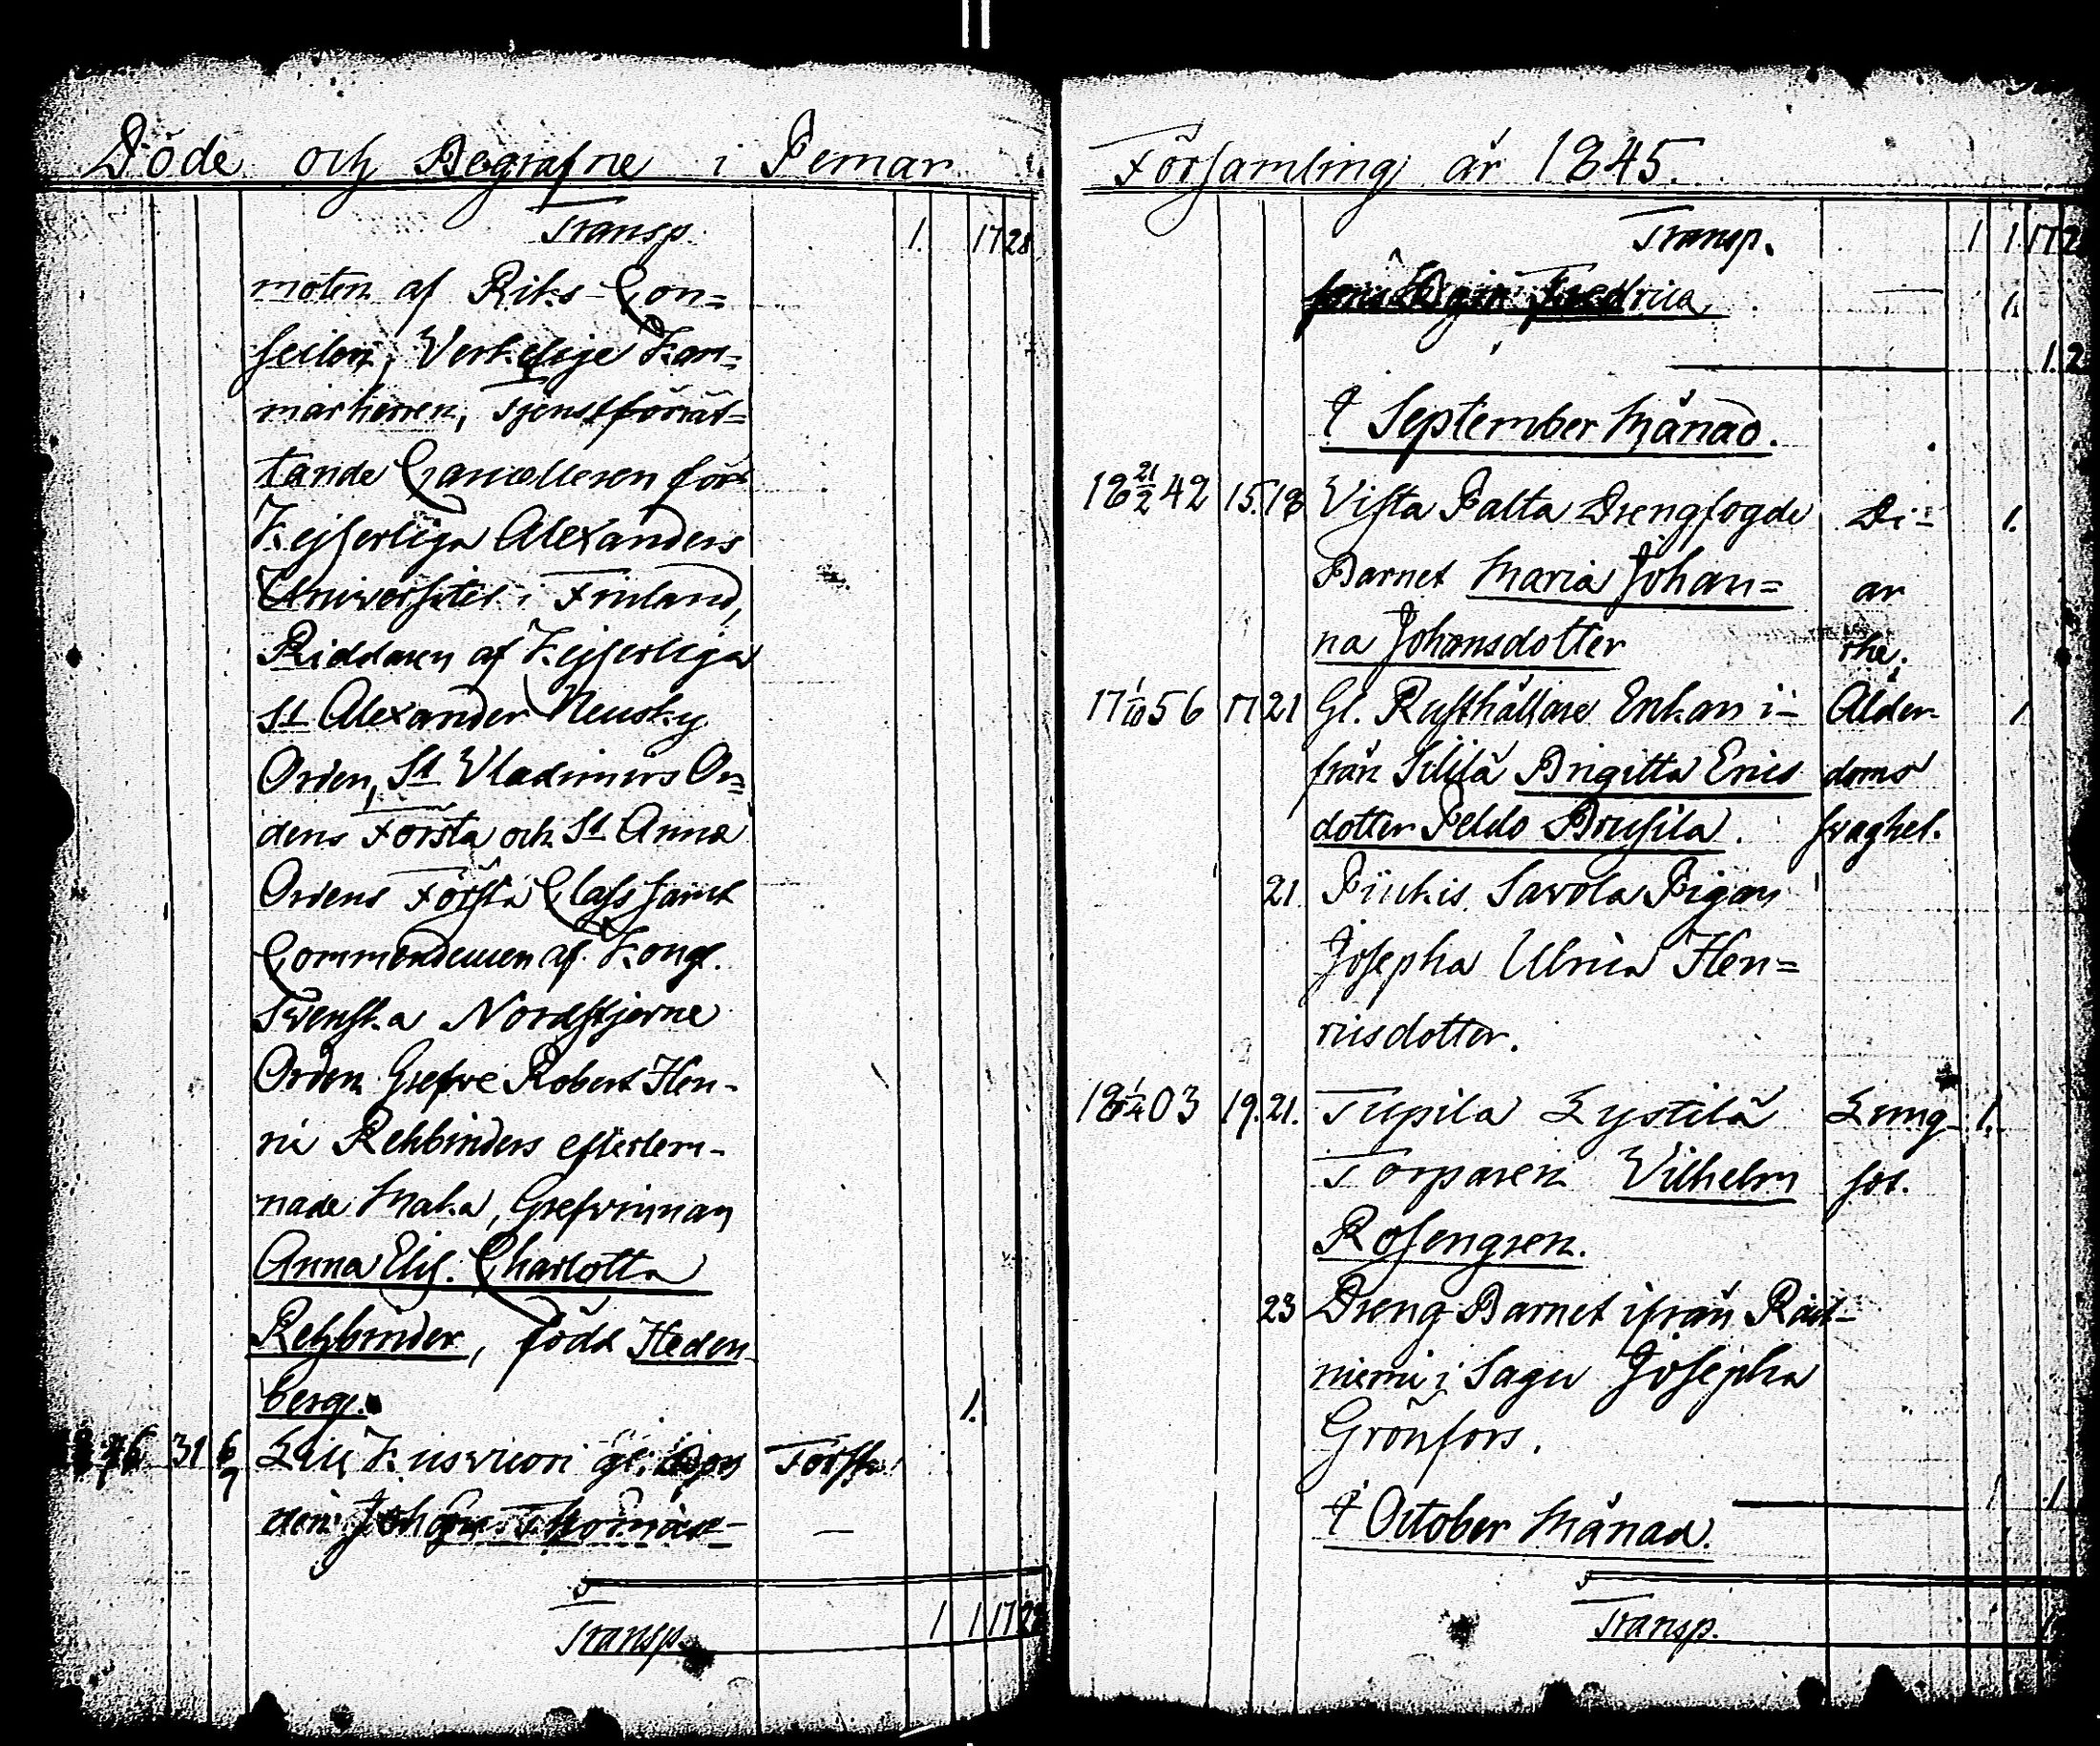 Döde och Begrafne i Pemar
Transp. 1. 17 28
moten af Riks-Con=
seilen, Verkelige Kam=
marherren, Tjenstförrät=
tande Cancelleren för
Kejserliga Alexanders
Universitet i Finland,
Riddaren af Kejserliga
St Alexander Neusky
Orden, St Vladimirs Or=
dens Första och St Anna
Ordens Första Class samt
Commendeuren af Kongl.
Svenska Nordstjerne
Orden Grefve Robert Hen-
ric Rehbinders efterlem-
nade Maka, Grefvinnan
Anna Elis. Charlotta
Rehbinder, född Heden
berg. 1.
76 31 6 7 gl. Torsk
Johan Thomas- —
Transp. 1 1 17 28
Församling år 1845.
Transp. 1 1. 17 2
1.
1. 2
I September Månad.
18 21/2 42 15. 18 Vista Palta Drengfogde Di- 1.
Barnet Maria Johan= ar
na Johansdotter rhé.
17 1/10 56 17 21 Gl. Rusthållare Enkan i- Ålder- 1
från Sililä Brigitta Erics doms
dotter Peldo Brusila. svaghet.
21 Piikis Savola Pigan
Josepha Ulrica Hen=
ricsdotter.
18 1/4 03 19. 21. Tupila Lystilä Lung- 1.
Torparen Vilhelm sot.
Rosengren.
23 Dreng Barnet ifrån
niemi i Sagu Josepha
Grönfors.
1 1
I October Månad.
Transp.